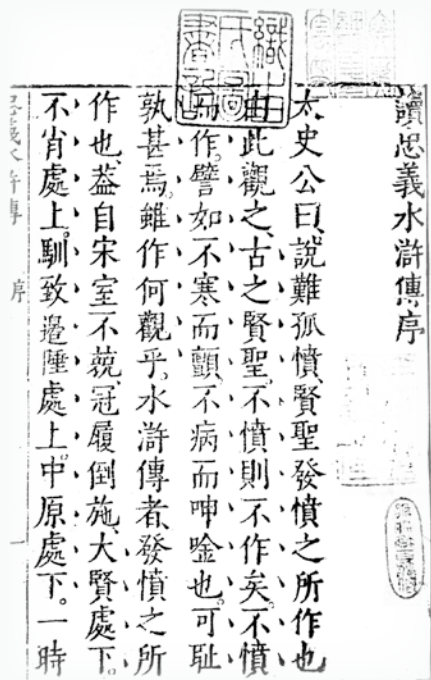 讀忠義水滸傳序
太史公曰、說難孤憤、賢聖發憤之所作也
由此觀之、古之賢聖、不憤則不作矣。不憤
而作。譬如不寒而顫、不病而呻唫也。可耻
孰甚焉。雖作何觀乎。水滸傳者、發憤之所
作也、葢自宋室不兢、冠履倒施、大賢處下。
不肖處上。馴致邉陲處上。中原處下。一時
忠義水滸傳 序